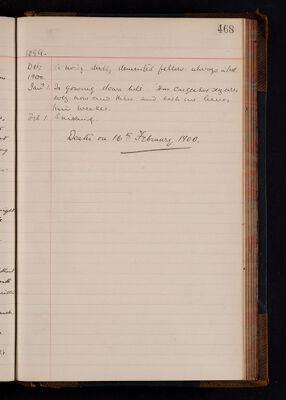 468
1899.
Dec. A noisy, dirty, demented fellow always in bed.
1900
Jan 1. Is growing down hill. Has seizures
now and then and each one leaves
him weaker.
Feb 1. Sinking.
Death on 16th February 1900.